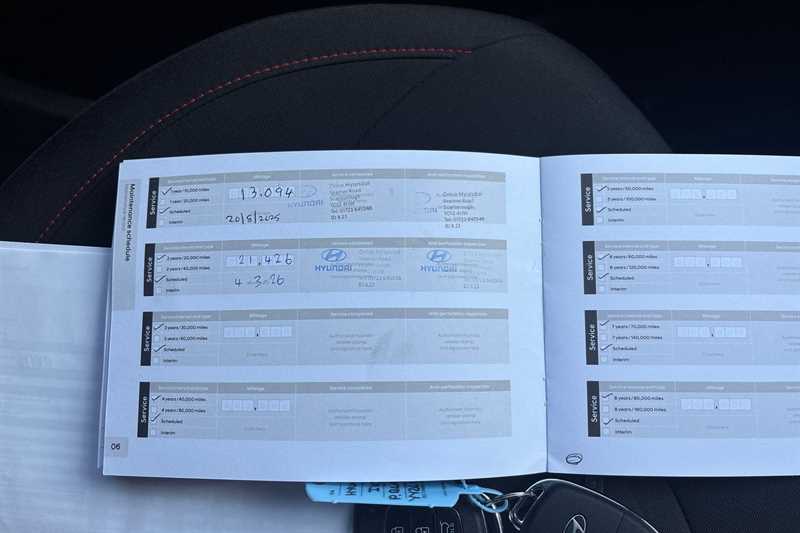 Maintenance schedule
Service
Service interval and type
Mileage
Service completed
Anti-perforation inspection
1 year / 10,000 miles
1 year / 20,000 miles
Scheduled
Interim
13.094
20/8/2025
HYUNDAI
Drive Hyundai
Seamer Road
Scarborough
YO12 4HW
Drive Hyundai
Seamer Road
Scarborough
YO12 4HW
Service
Service interval and type
Mileage
Service completed
Anti-perforation inspection
2 years / 20,000 miles
2 years / 40,000 miles
Scheduled
Interim
21.426
4-3-26
HYUNDAI
HYUNDAI
Service
Service interval and type
Mileage
Service completed
Anti-perforation inspection
3 years / 30,000 miles
3 years / 60,000 miles
Scheduled
Interim
Service
Service interval and type
Mileage
Service completed
Anti-perforation inspection
4 years / 40,000 miles
4 years / 80,000 miles
Scheduled
Interim
06
Service
Service interval and type
Mileage
5 years / 50,000 miles
5 years / 100,000 miles
Scheduled
Interim
Service
Service interval and type
Mileage
6 years / 60,000 miles
6 years / 120,000 miles
Scheduled
Interim
Service
Service interval and type
Mileage
7 years / 70,000 miles
7 years / 140,000 miles
Scheduled
Interim
Service
Service interval and type
Mileage
8 years / 80,000 miles
8 years / 160,000 miles
Scheduled
Interim